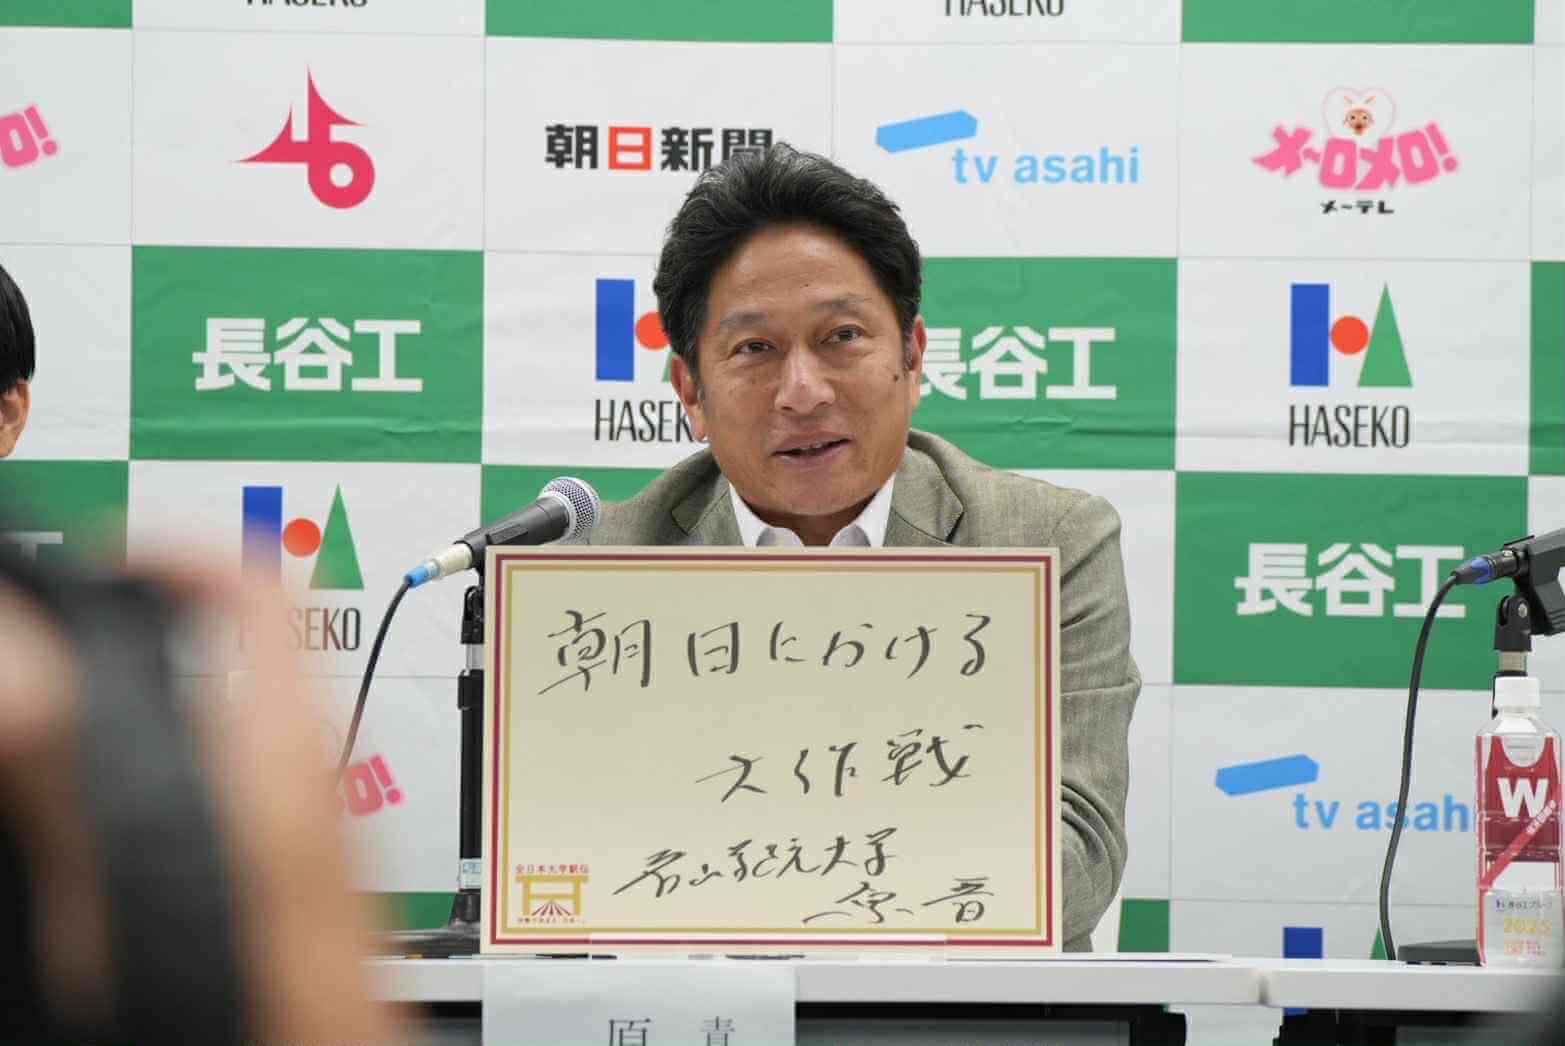 HASEKO
HASEKO
ロ!
朝日新聞
tv asahi
メ〜ロメロ!
メ〜テレ
長谷工
長谷工
HASEKO
HASEKO
SEKO
長谷工
ロ!
tv asahi
W
2025
朝日にかける
大作戦
青山学院大学
原晋
全日本大学駅伝
原 青